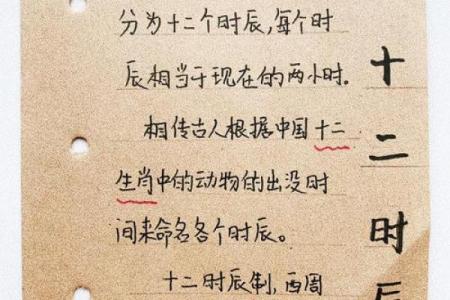 分为十二个时辰,每个时
辰相当于现在的两小时.
相传古人根据中国十二
生肖中的动物的出没时
间来命名各个时辰。
十二时辰制,西周
十二时辰